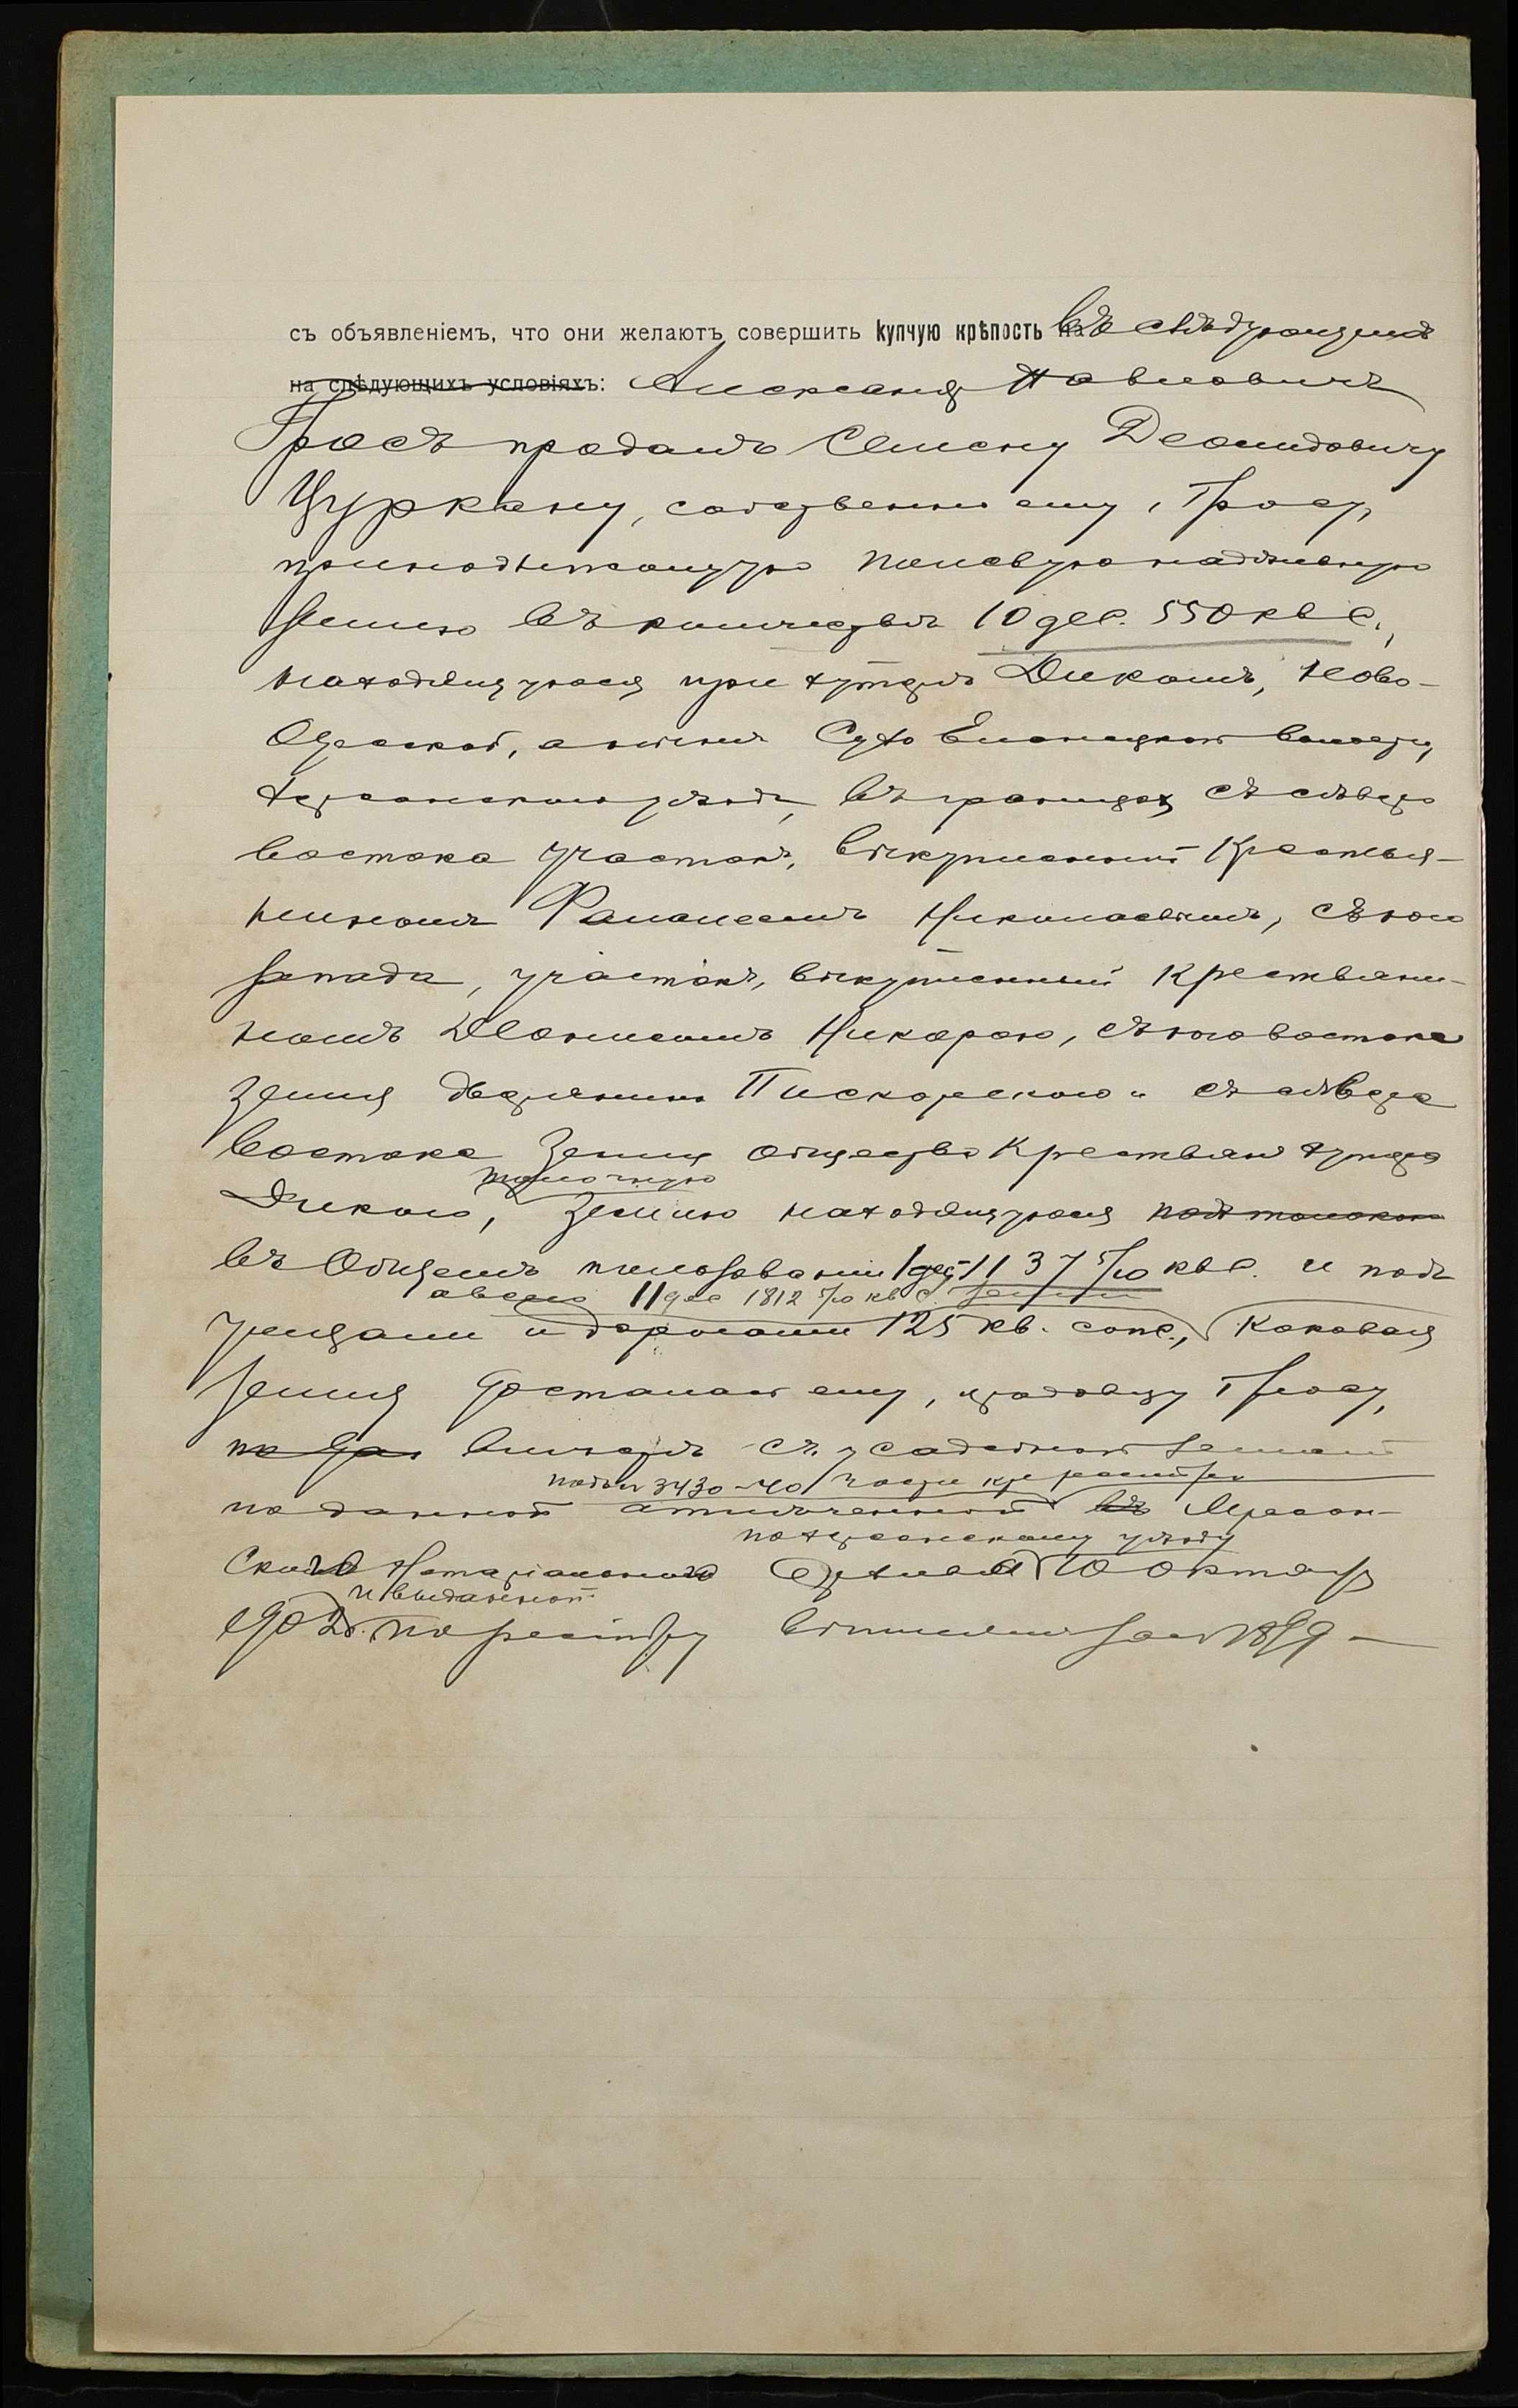 съ объявленіемъ, что они желаютъ совершить купчую крѣпость на въ слѣдующемъ
на слѣдующихъ условіяхъ: Александръ Павловичъ
Гросъ продалъ Семену Леонидовичу
Цуркану, собственно ему, Гросу,
принадлежащую полевую надѣльную
землю въ количествѣ 10 дес. 550 кв. с.,
находящуюся при хуторѣ Дикомъ, Ново-
Одесской, а нынѣ Сухо Еланецкой волости,
Херсонскаго уѣзда, въ границахъ съ сѣверо
востока участокъ, выкупленный крестья-
ниномъ Николаевымъ, съ юго
запада, участокъ, выкупленный крестьяни-
номъ Никорою, съ юго востока
земля дворянина Пискорскаго и съ сѣверо
востока земля общества крестьянъ хутора
толочную
Дикаго, землю находящуюся подъ толокою
въ общемъ пользованіи 1 дес. 1137 5/10 кв. с. и подъ
а всего 11 дес 1812 5/10 кв. с. земли
улицами и дорогами 125 кв. саж., каковая
земля досталась ему, продавцу Гросу,
вмѣстѣ съ усадебной землей
подъ № 3430-40 части крѣп. реестра
по данной отмѣченной въ Херсон-
по Херсонскому уѣзду
скаго Нотаріальнаго Архива 10 октября
и выданной
1902 г. по реестру